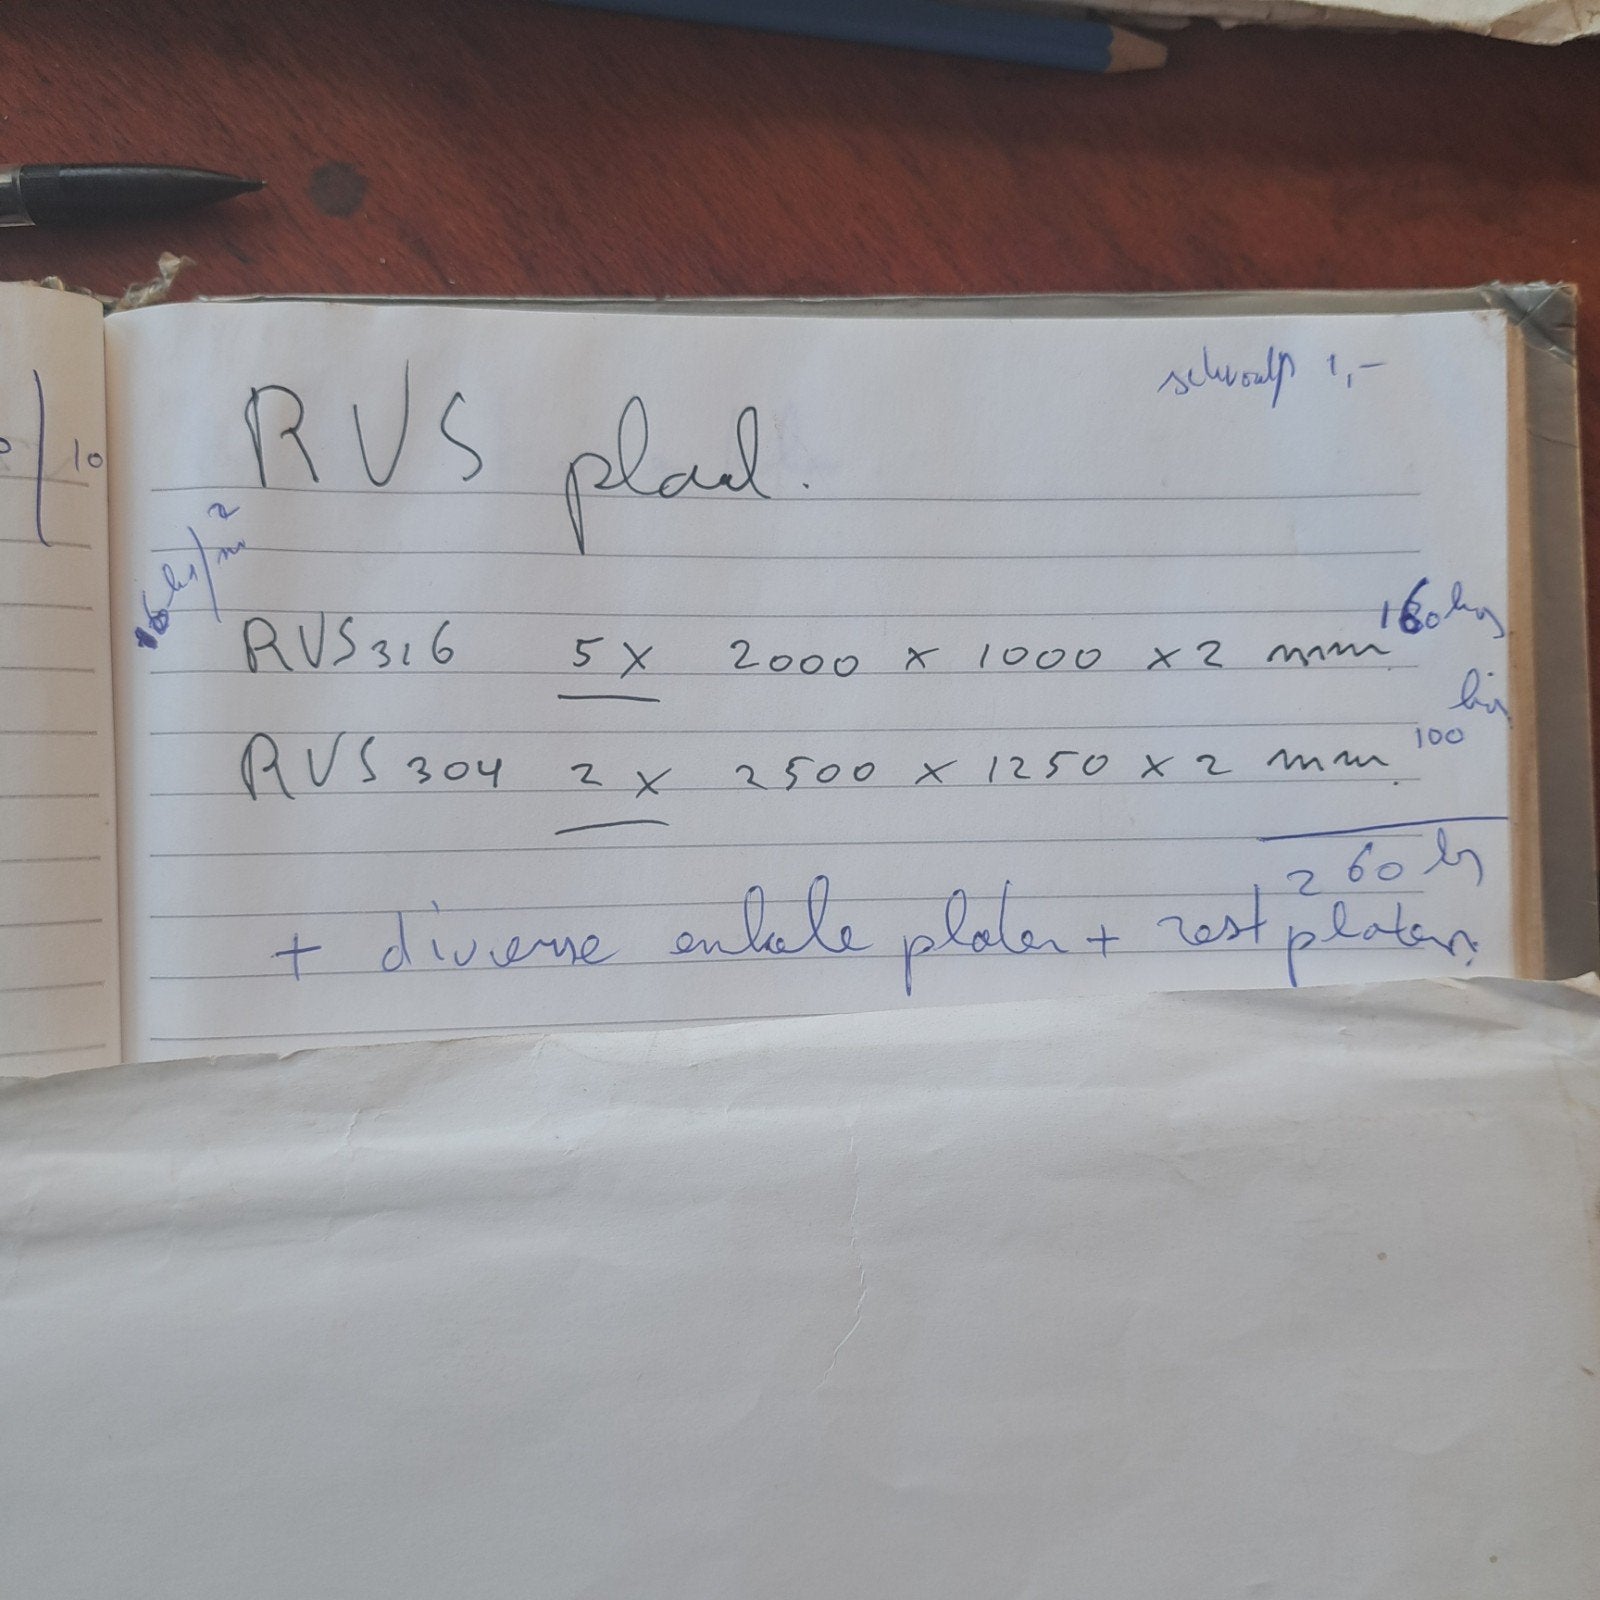 schroot 1,-
10
RVS plaat.
16 kg/m²
RVS 316 5x 2000 x 1000 x 2 mm 160 kg
RVS 304 2x 2500 x 1250 x 2 mm. 100 kg
260 kg
+ diverse enkele platen + rest platen.